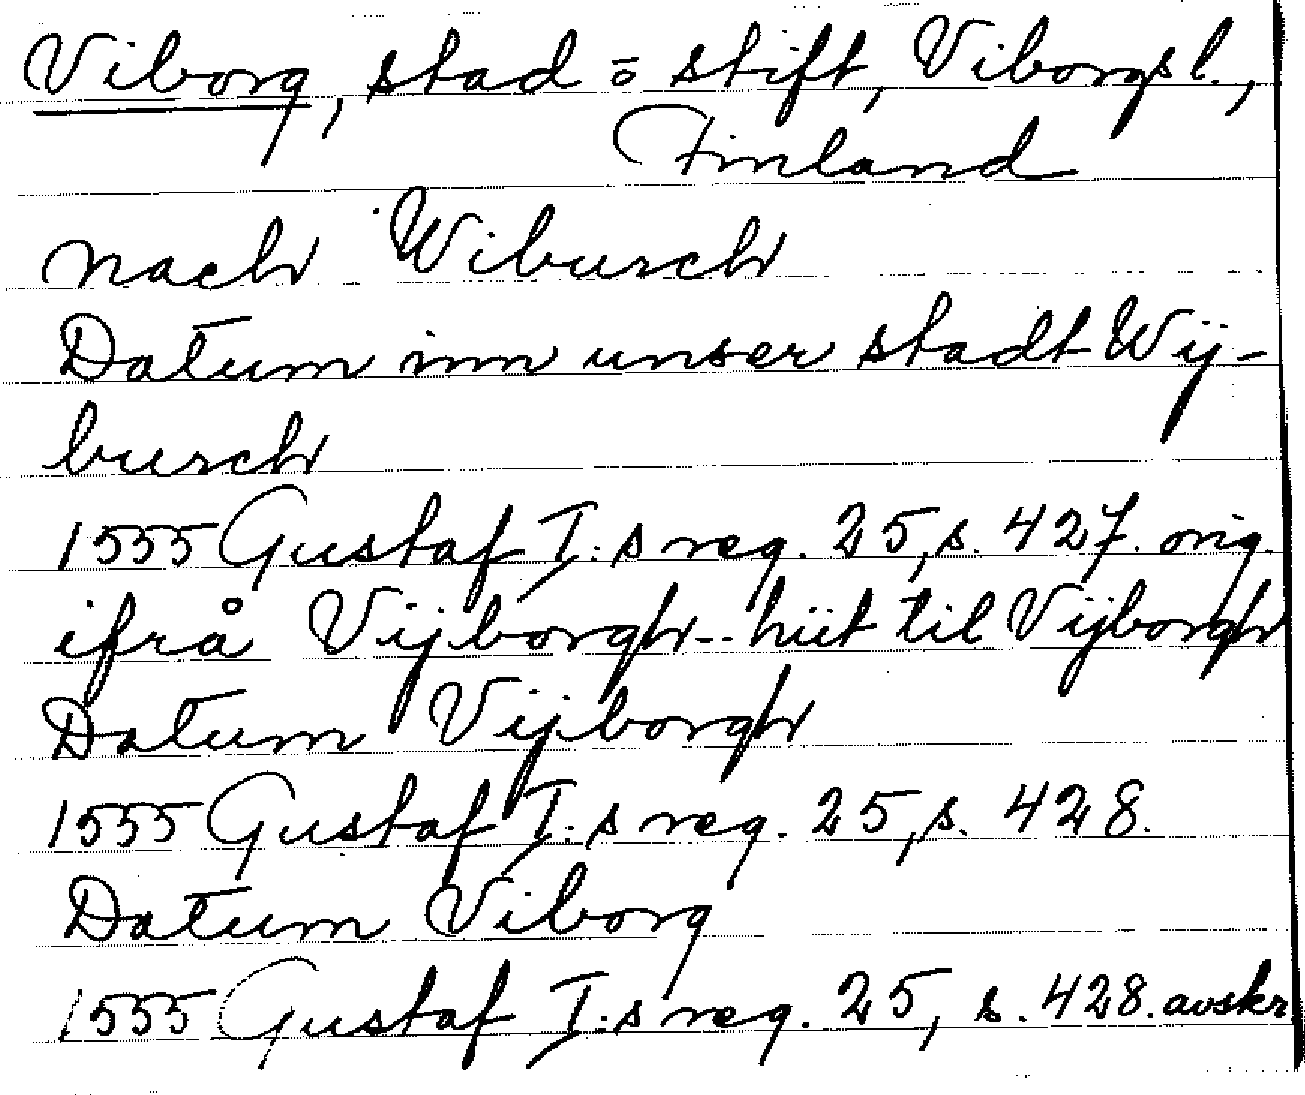 Viborg, stad o stift, Viborgs l.,
Finland
nach Wiburch
Datum inn unser stadt Wij-
burch
1555 Gustaf I:s reg. 25, s. 427. orig.
ifrå Vijborgh -- hiit til Vijborgh
Datum Vijborgh
1555 Gustaf I:s reg. 25, s. 428.
Datum Viborg
1555 Gustaf I:s reg. 25, s. 428. avskr.